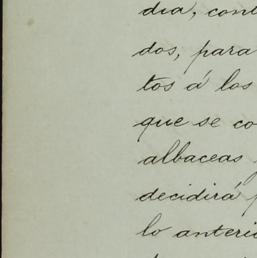 dia, cont
dos, para
tos á los
que se co
albaceas
decidirá
lo anterio